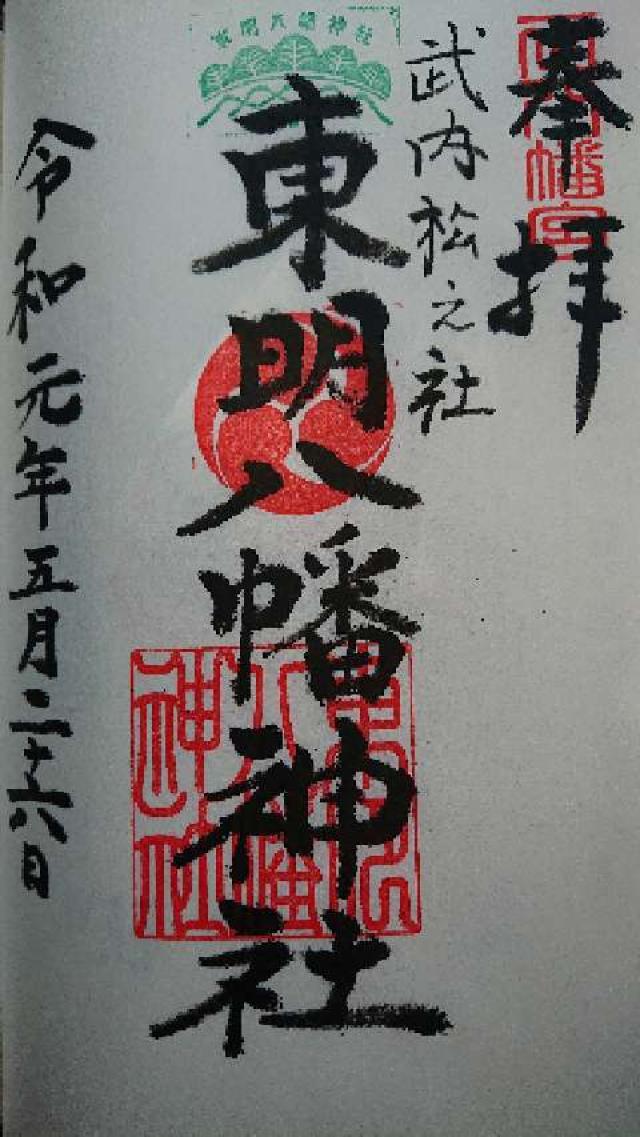 奉拝
武内松之社
東明八幡神社
東明八幡神社
八幡神社
令和元年五月二十六日